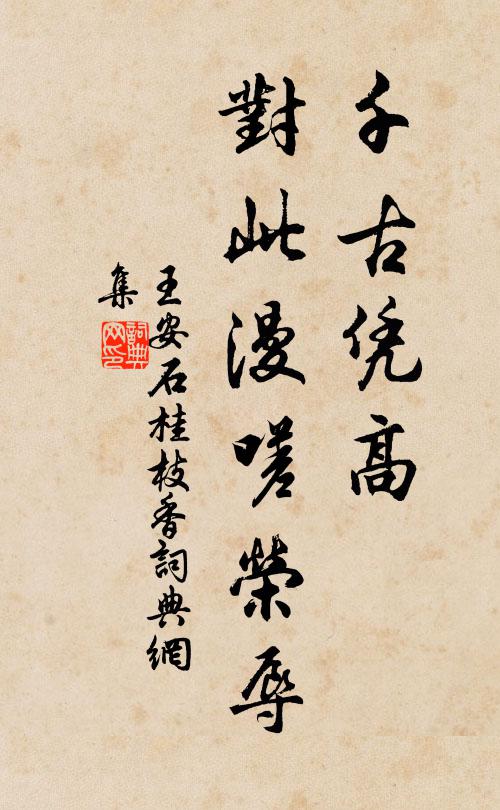 千古凭高
對此漫嗟榮辱
王安石桂枝香詞典網
集
詞典網印